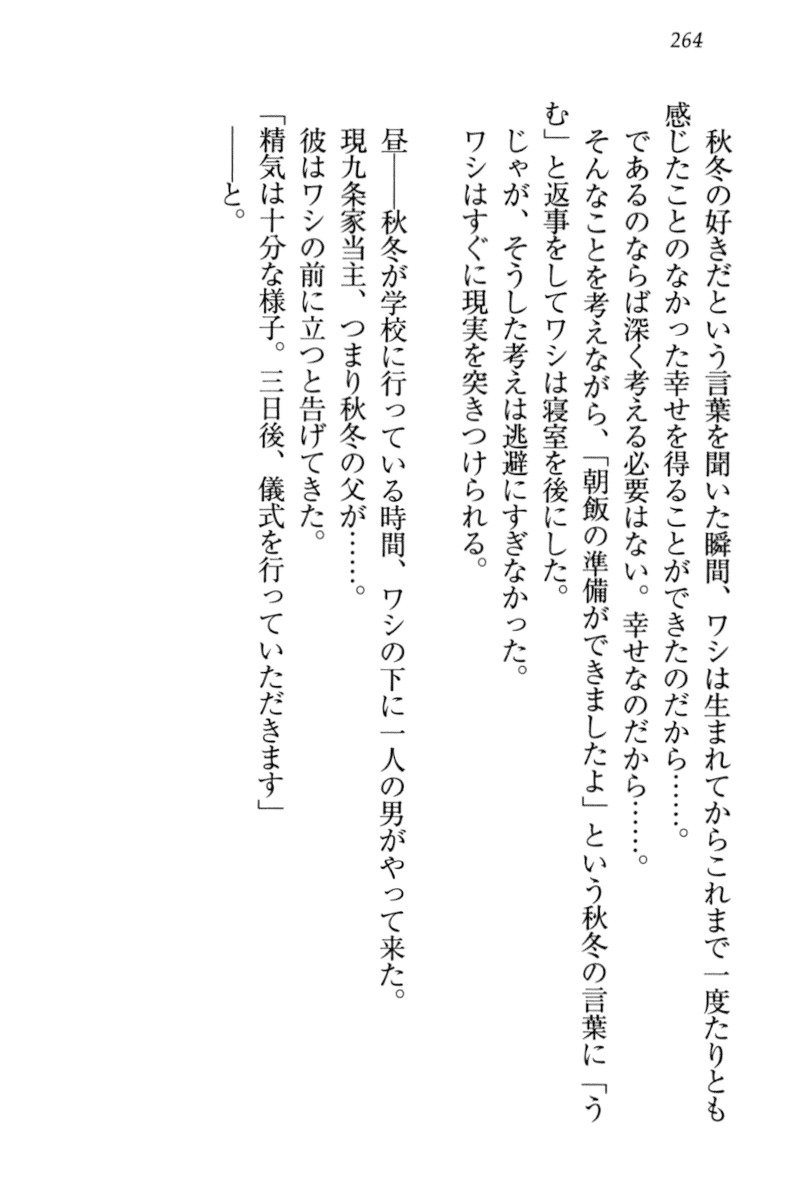 264
秋冬の好きだという言葉を聞いた瞬間、ワシは生まれてからこれまで一度たりとも
感じたことのなかった幸せを得ることができたのだから……。
であるのならば深く考える必要はない。幸せなのだから……。
そんなことを考えながら、「朝飯の準備ができましたよ」という秋冬の言葉に「う
む」と返事をしてワシは寝室を後にした。
じゃが、そうした考えは逃避にすぎなかった。
ワシはすぐに現実を突きつけられる。
昼――秋冬が学校に行っている時間、ワシの下に一人の男がやって来た。
現九条家当主、つまり秋冬の父が……。
彼はワシの前に立つと告げてきた。
「精気は十分な様子。三日後、儀式を行っていただきます」
――と。